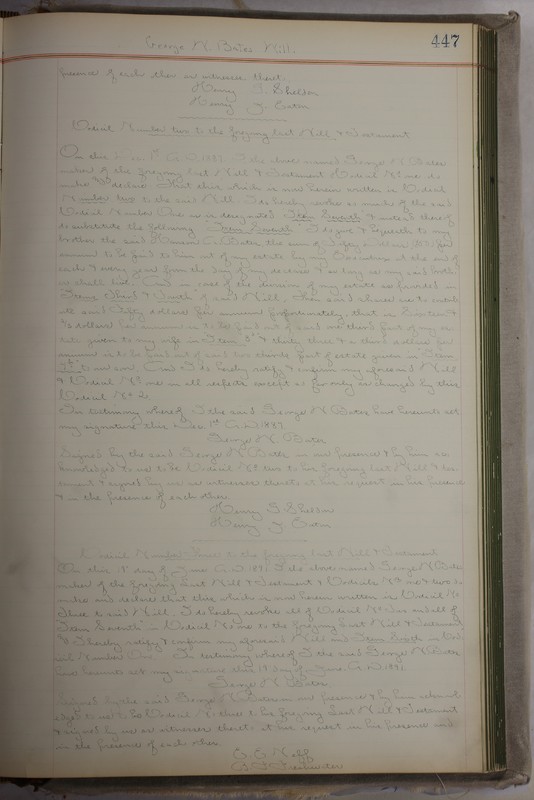 George N. Bates Will.
447
presence of each other as witnesses thereto.
Henry S. Sheldon
Henry J. Eaton
Codicil Number two to the foregoing last Will & Testament
On this A.D. 1887. I the above named George N. Bates
maker of the foregoing last Will & Testament & Codicil No one do
make & declare that this which is now herein written is Codicil
Number two to the said Will. I do hereby revoke so much of the said
Codicil Number One as is designated Item Seventh & instead thereof
to substitute the following Item Seventh I give & bequeath to my
brother the said A. Bates the sum of Fifty dollars per
annum to be paid to him out of my estate by my Executors at the end of
each & every year from the day of my decease & so long as my said brother
shall live. And in case of the division of my estate as provided in
Items Third & Fourth of said Will, then said shares are to contribute
said fifty dollars per annum proportionately, that is Sixteen &
2/3 dollars per annum is to be paid out of said one third part of my
estate given to my wife in Item 3d & thirty three & a third dollars per
annum is to be paid out of said two thirds part of estate given in Item
4th to our son. And I do hereby ratify & confirm my aforesaid Will
& Codicil No one in all respects except so far only as changed by this
Codicil No 2.
In testimony whereof I the said George N. Bates have hereunto set
my signature this 1st A.D. 1887.
George N. Bates
Signed by the said George N. Bates in our presence & by him
acknowledged to us to be Codicil No two to his foregoing last Will &
Testament & signed by us as witnesses thereto at his request in his presence
& in the presence of each other.
Henry S. Sheldon
Henry J. Eaton
Codicil Number three to the foregoing last Will & Testament
On this 19 day of June A.D. 1891 I the above named George N. Bates
maker of the foregoing last Will & Testament & Codicils No one & two do
make and declare that this which is now herein written is Codicil No
Three to said Will. I do hereby revoke all of Codicil No two and all of
Item Seventh in Codicil No one to the foregoing last Will & Testament
& I hereby ratify & confirm my aforesaid Will and Item in
Codicil Number One. In testimony whereof I the said George N. Bates
have hereunto set my signature this 19 day of June A.D. 1891.
George N. Bates
Signed by the said George N. Bates in our presence & by him
acknowledged to us to be Codicil No three to his foregoing last Will & Testament
& signed by us as witnesses thereto at his request in his presence and
in the presence of each other.
C. E. Neff